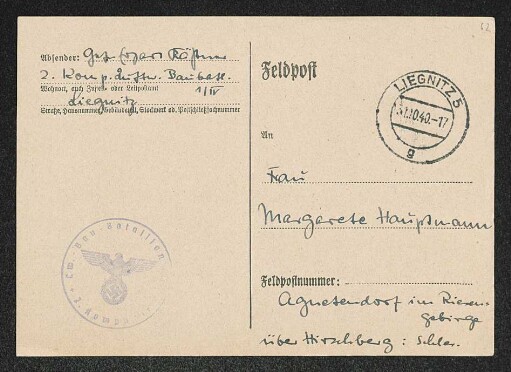 62
Absender: Gefr. (
2. Komp. Luftw. Baubatl.
Wohnort, auch Zustell- oder Leitpostamt
1/IV
Liegnitz
Straße, Hausnummer, Gebäudeteil, Stockwerk od. Postschließfachnummer
Feldpost
LIEGNITZ 5
10.40.-17
g
An
Frau
Margarete Hauptmann
Feldpostnummer:
Agnetendorf im Riesen-
gebirge
über Hirschberg : Schles.
Lw. Bau-Bataillon
* 2. Komp